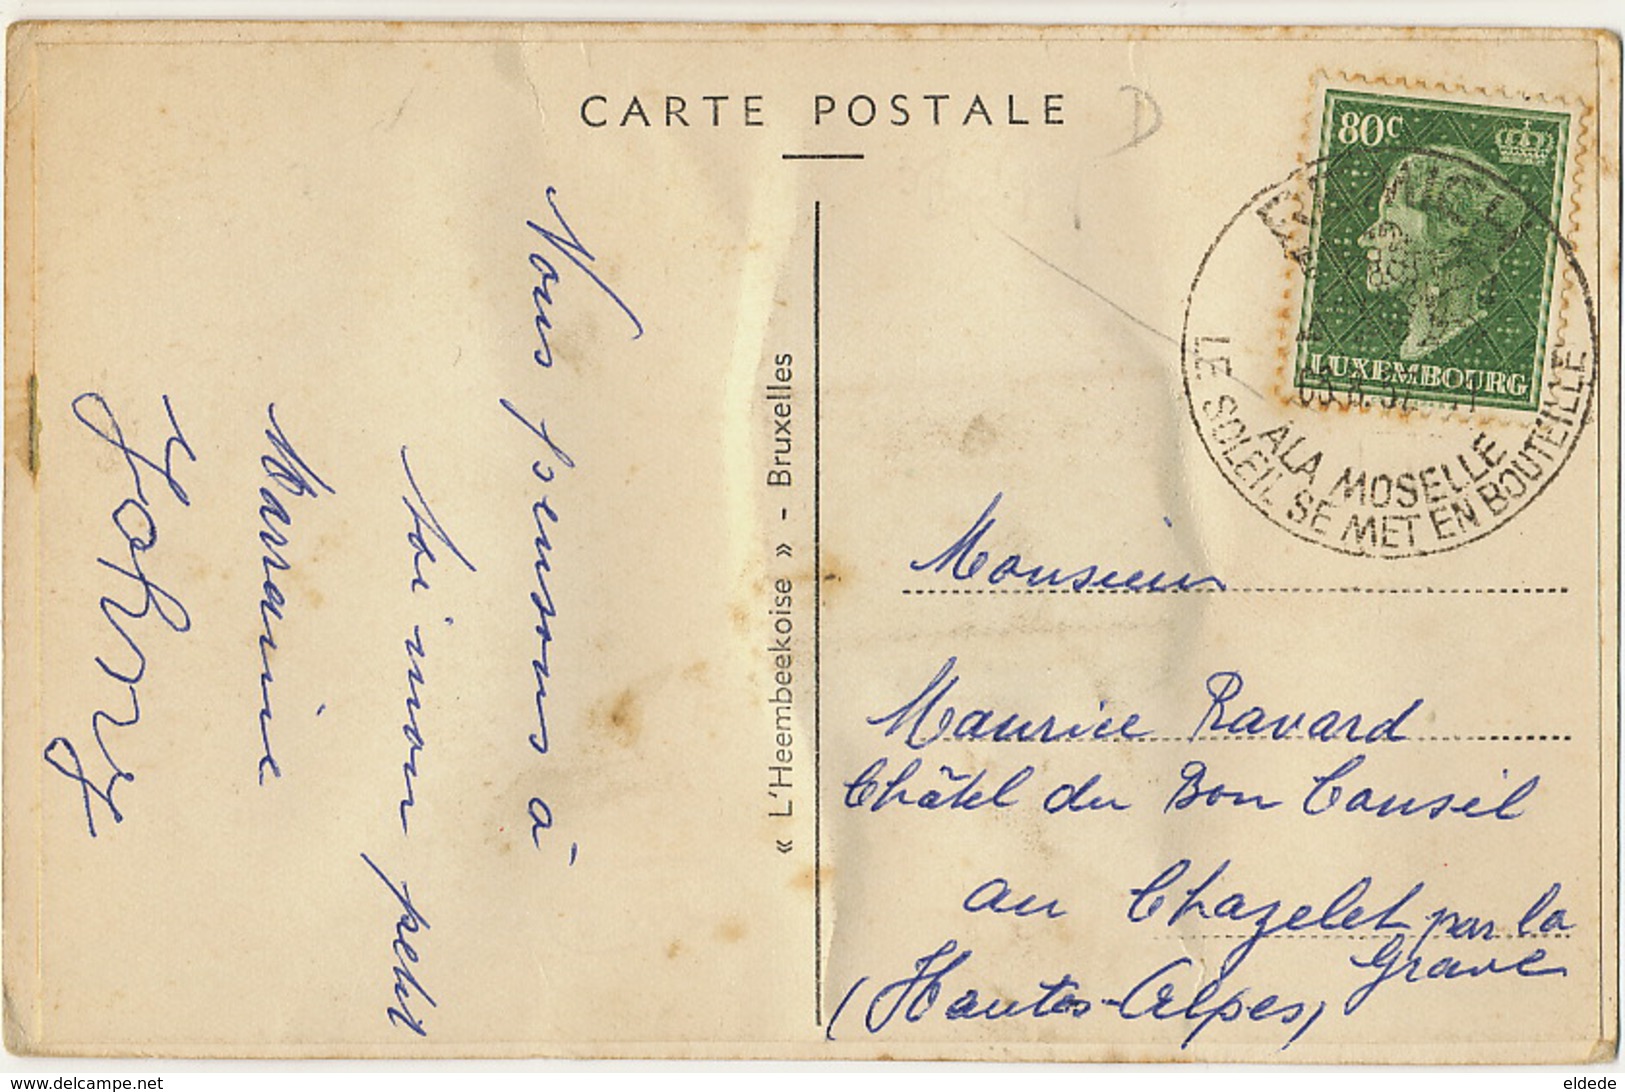 CARTE POSTALE
D
80c
LUXEMBOURG
A LA MOSELLE
LE SOLEIL SE MET EN BOUTEILLE
« L'Heembeekoise » - Bruxelles
Nous pensons à
toi mon petit
Marraine
Monsieur
Maurice Ravard
Châtel du Bon Conseil
au Chazelet par la
Grave
(Hautes-Alpes)
www.delcampe.net
eldede